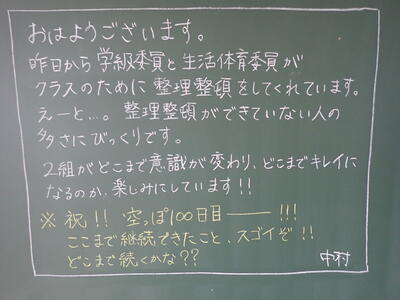 おはようございます。
昨日から学級委員と生活体育委員が
クラスのために整理整頓をしてくれています。
えーと…。整理整頓ができていない人の
多さにびっくりです。
2組がどこまで意識が変わり、どこまでキレイに
なるのか、楽しみにしています!!
※祝!! 空っぽ100日目――!!!
ここまで継続できたこと、スゴイぞ!!
どこまで続くかな??
中村